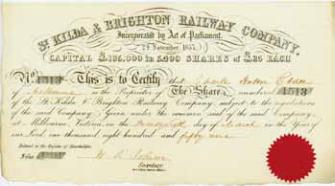 ST. KILDA & BRIGHTON RAILWAY COMPANY.
Incorporated by Act of Parliament.
24 November 1857.
CAPITAL IN SHARES OF £25 EACH
No. 1513 This is to Certify that
of Melbourne is the Proprietor of The Share numbered 1513
of the St. Kilda & Brighton Railway Company, subject to the regulations
of the said Company; Given under the common seal of the said Company,
at Melbourne, Victoria, on the day of in the Year of
our Lord, one thousand, eight hundred and fifty nine
Entered in the Register of Shareholders
Secretary